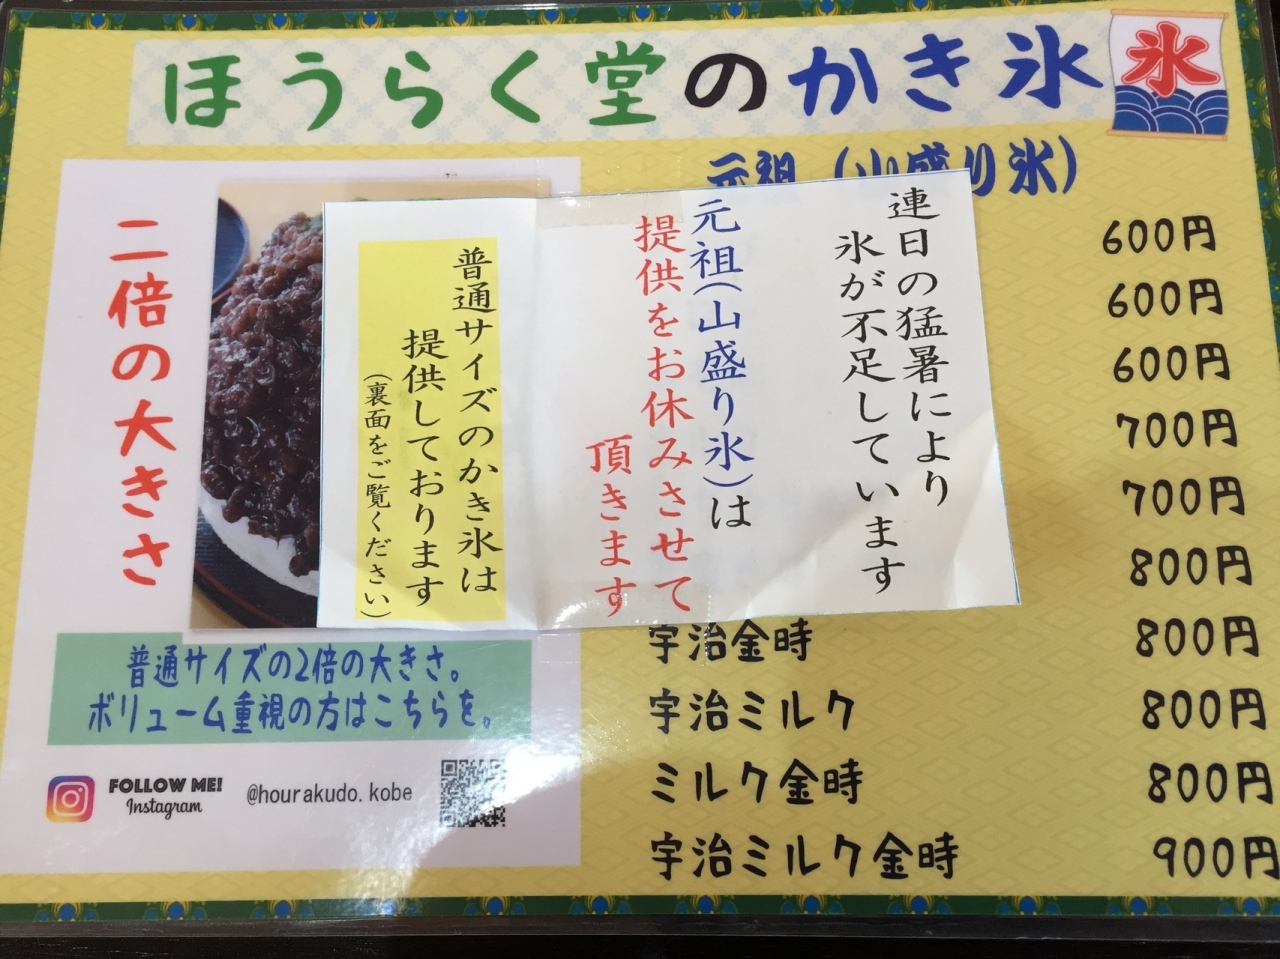 ほうらく堂のかき氷
氷
元祖（山盛り氷）
二倍の大きさ
連日の猛暑により
氷が不足しています
元祖(山盛り氷)は
提供をお休みさせて
頂きます
普通サイズのかき氷は
提供しております
(裏面をご覧ください)
600円
600円
600円
700円
700円
800円
宇治金時 800円
宇治ミルク 800円
ミルク金時 800円
宇治ミルク金時 900円
普通サイズの2倍の大きさ。
ボリューム重視の方はこちらを。
FOLLOW ME!
Instagram
@hourakudo.kobe